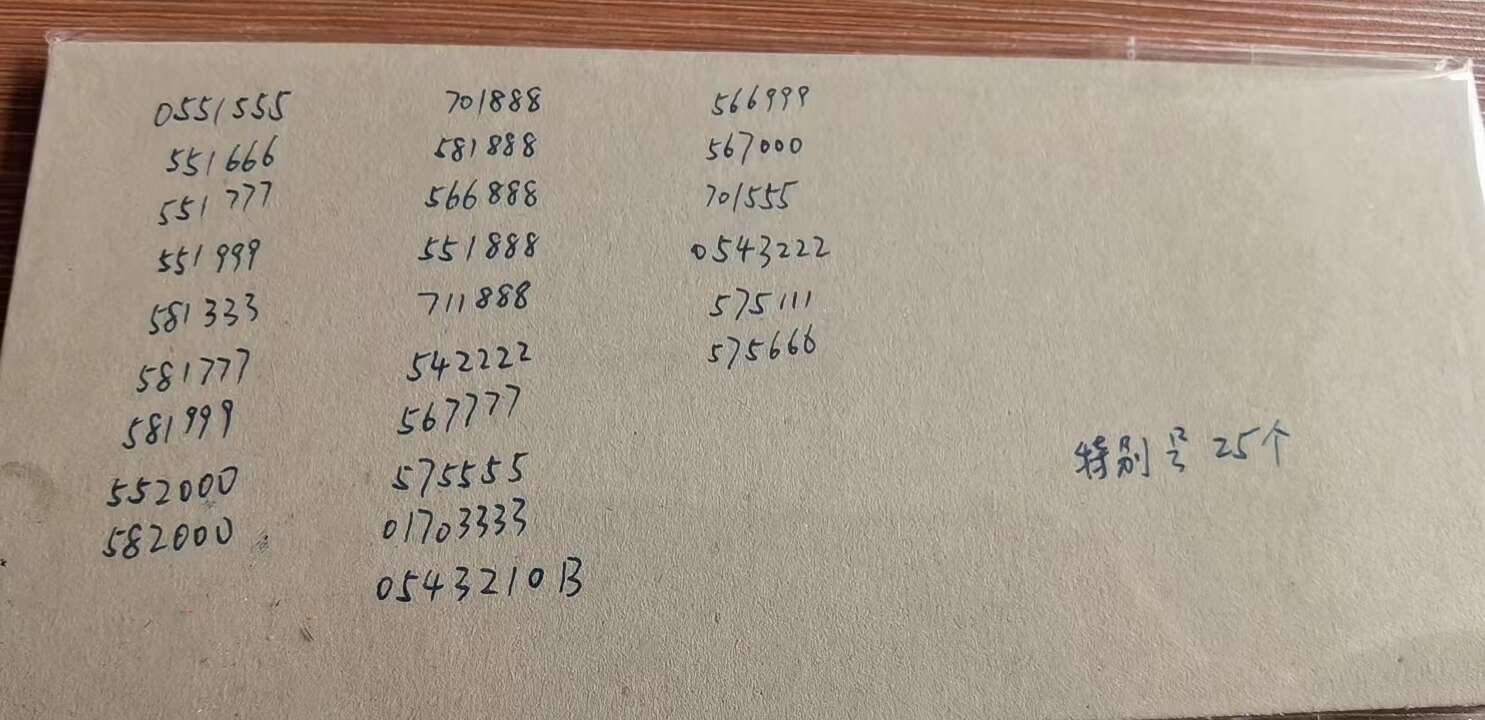 0551555
551666
551777
551999
581333
581777
581999
552000
582000
701888
581888
566888
551888
711888
542222
567777
575555
01703333
0543210B
566999
567000
701555
0543222
575111
575666
特别号25个